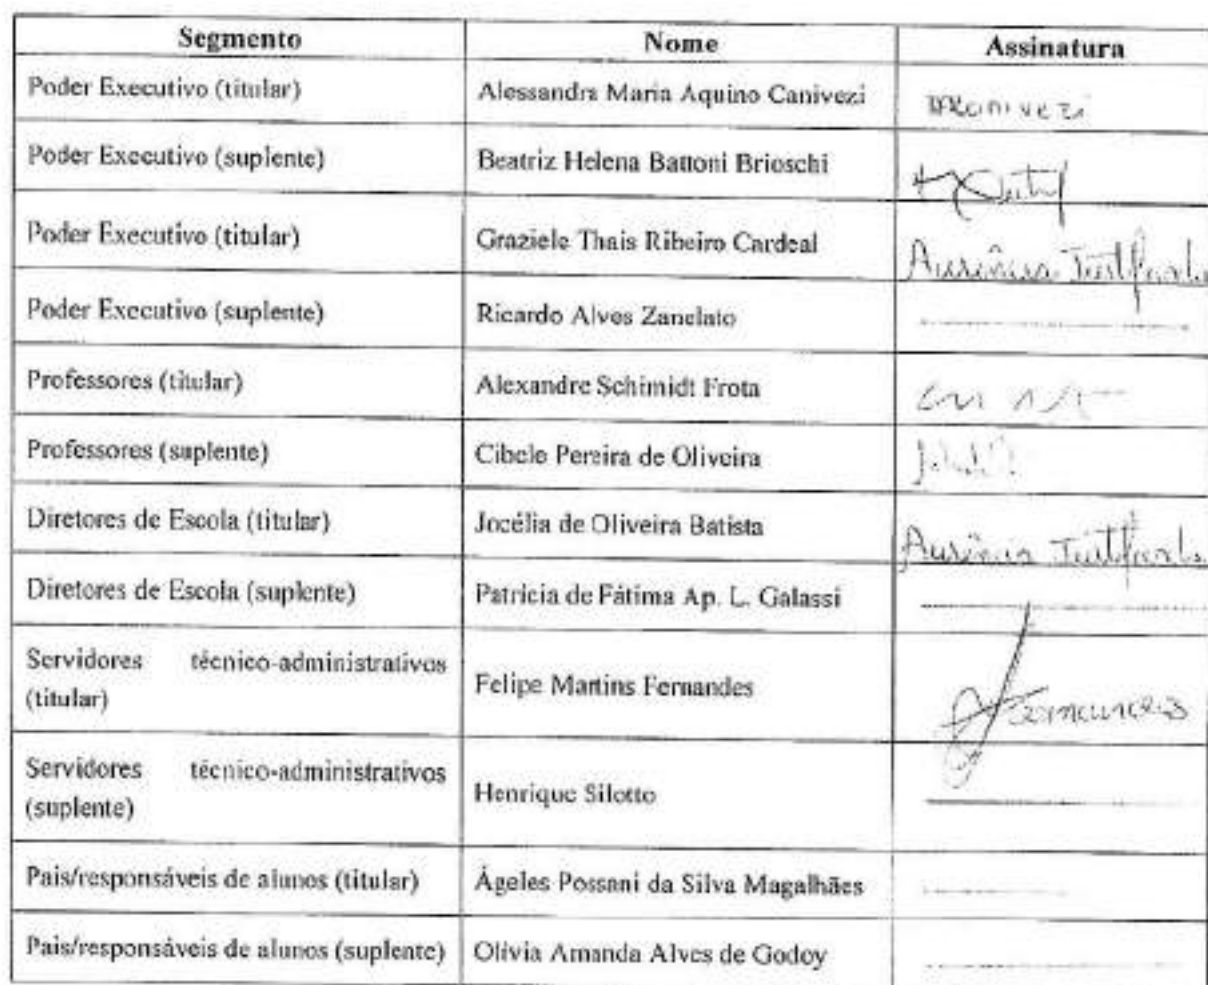 Segmento Nome Assinatura
Poder Executivo (titular) Alessandra Maria Aquino Canivezi
Poder Executivo (suplente) Beatriz Helena Battoni Brioschi
Poder Executivo (titular) Graziele Thais Ribeiro Cardeal Ausência Justificada
Poder Executivo (suplente) Ricardo Alves Zanelato
Professores (titular) Alexandre Schimidt Frota
Professores (suplente) Cibele Pereira de Oliveira
Diretores de Escola (titular) Jocélia de Oliveira Batista Ausência Justificada
Diretores de Escola (suplente) Patricia de Fátima Ap. L. Galassi
Servidores técnico-administrativos
(titular)
Felipe Martins Fernandes Fernandes
Servidores técnico-administrativos
(suplente)
Henrique Silotto
Pais/responsáveis de alunos (titular) Ágeles Possani da Silva Magalhães
Pais/responsáveis de alunos (suplente) Olívia Amanda Alves de Godoy